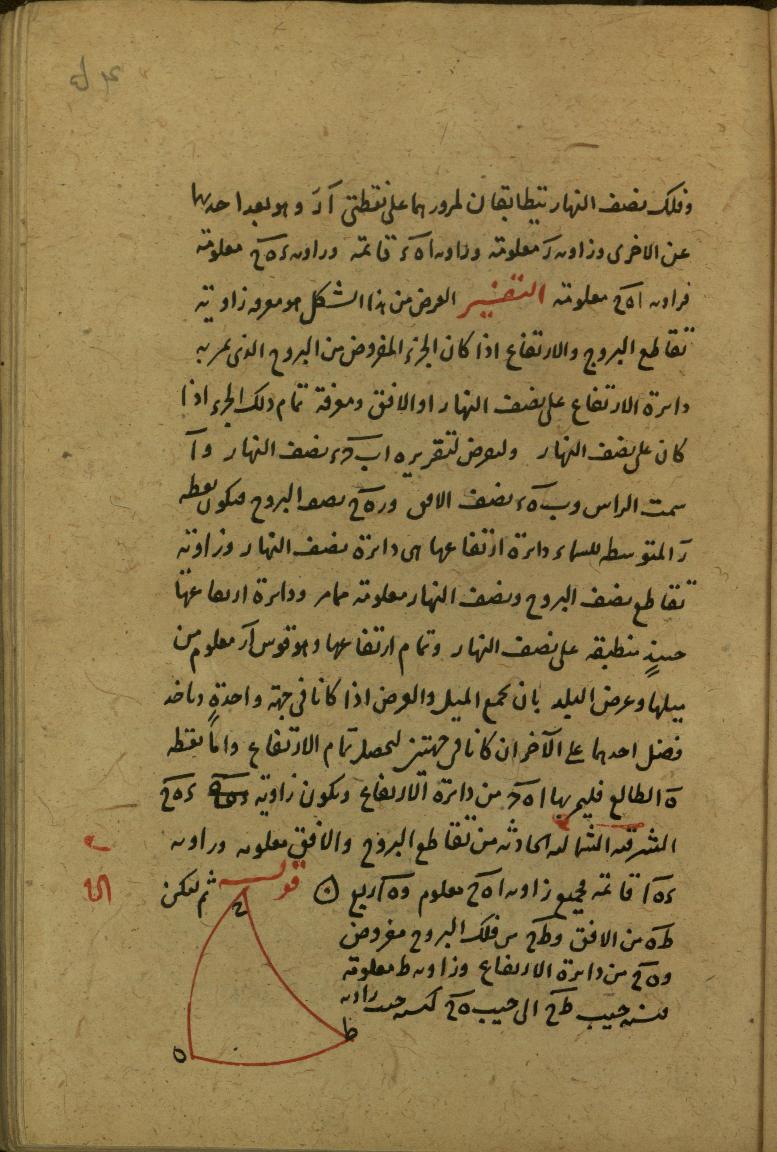 وفلك نصف النهار يتطابقان لمرورهما على نقطتى آ ر وهو بعد احدهما
عن الاخرى وزاوىه ر معلومته وزاوىه ا ه ء قائمه وزاوىه ء ه ح معلومته
فزاوىه ا ه ح معلومته التفسير الغرض من هذا الشكل هو معرفه زاوىة
تقاطع البروج والارتفاع اذا كان الجزء المفروض من البروج الذى يمر به
دائرة الارتفاع على نصف النهار او الافق ومعرفة تمام ذلك الجزء اذا
كان على نصف النهار ولىعرض لتقريره اب نصف النهار و آ
سمت الراس وب ه ء نصف الافق و ر ه ح نصف البروج فىكون نقطه
ر المتوسطه للسماء دائرة ارتفاعها هى دائرة نصف النهار وزاوىه
تقاطع نصف البروج ونصف النهار معلومته مما مر ودائرة ارتفاعها
حىنىذٍ منطبقه على نصف النهار وتمام ارتفاعها وهو قوس آر معلوم من
ميلها وعرض البلد بان ىجمع الميل والعرض اذا كانا فى جهة واحدةٍ وىاخذ
فضل احدهما على الآخر ان كانا فى جهتىن لىحصل تمام الارتفاع واما نقطه
ه الطالع فليمر بها ا ه من دائرة الارتفاع وىكون زاوىه ء ه ح
المشرقىه الشمالىه الحادثه من تقاطع البروج والافق معلومه وزاوىه
ء ه ا قائمه فجميع زاوىه ا ه ح معلوم و ه ا ربع ثم لىكن
ط ه من الافق و ط ح من فلك البروج مفروض
و ه ح من دائرة الارتفاع وزاوىه ط معلومته
فنسبه جيب ط ح الى جيب ه ح كنسبه جيب زاوىه
ح
ط
ه